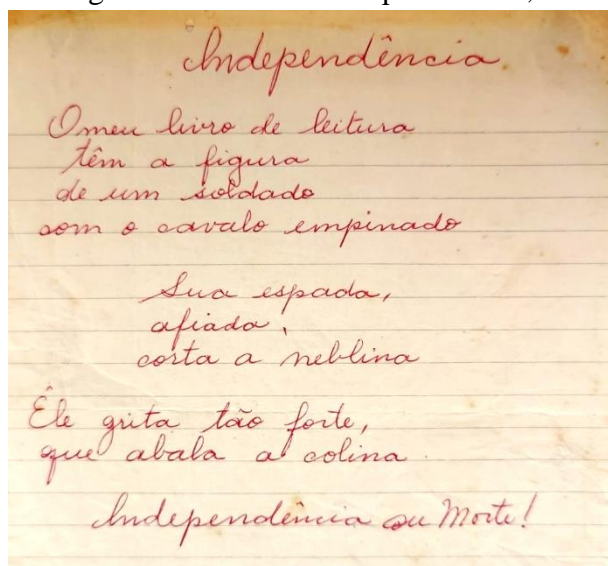 Independência
O meu livro de leitura
têm a figura
de um soldado
com o cavalo empinado
Sua espada,
afiada,
corta a neblina
Êle grita tão forte,
que abala a colina.
Independência ou Morte!